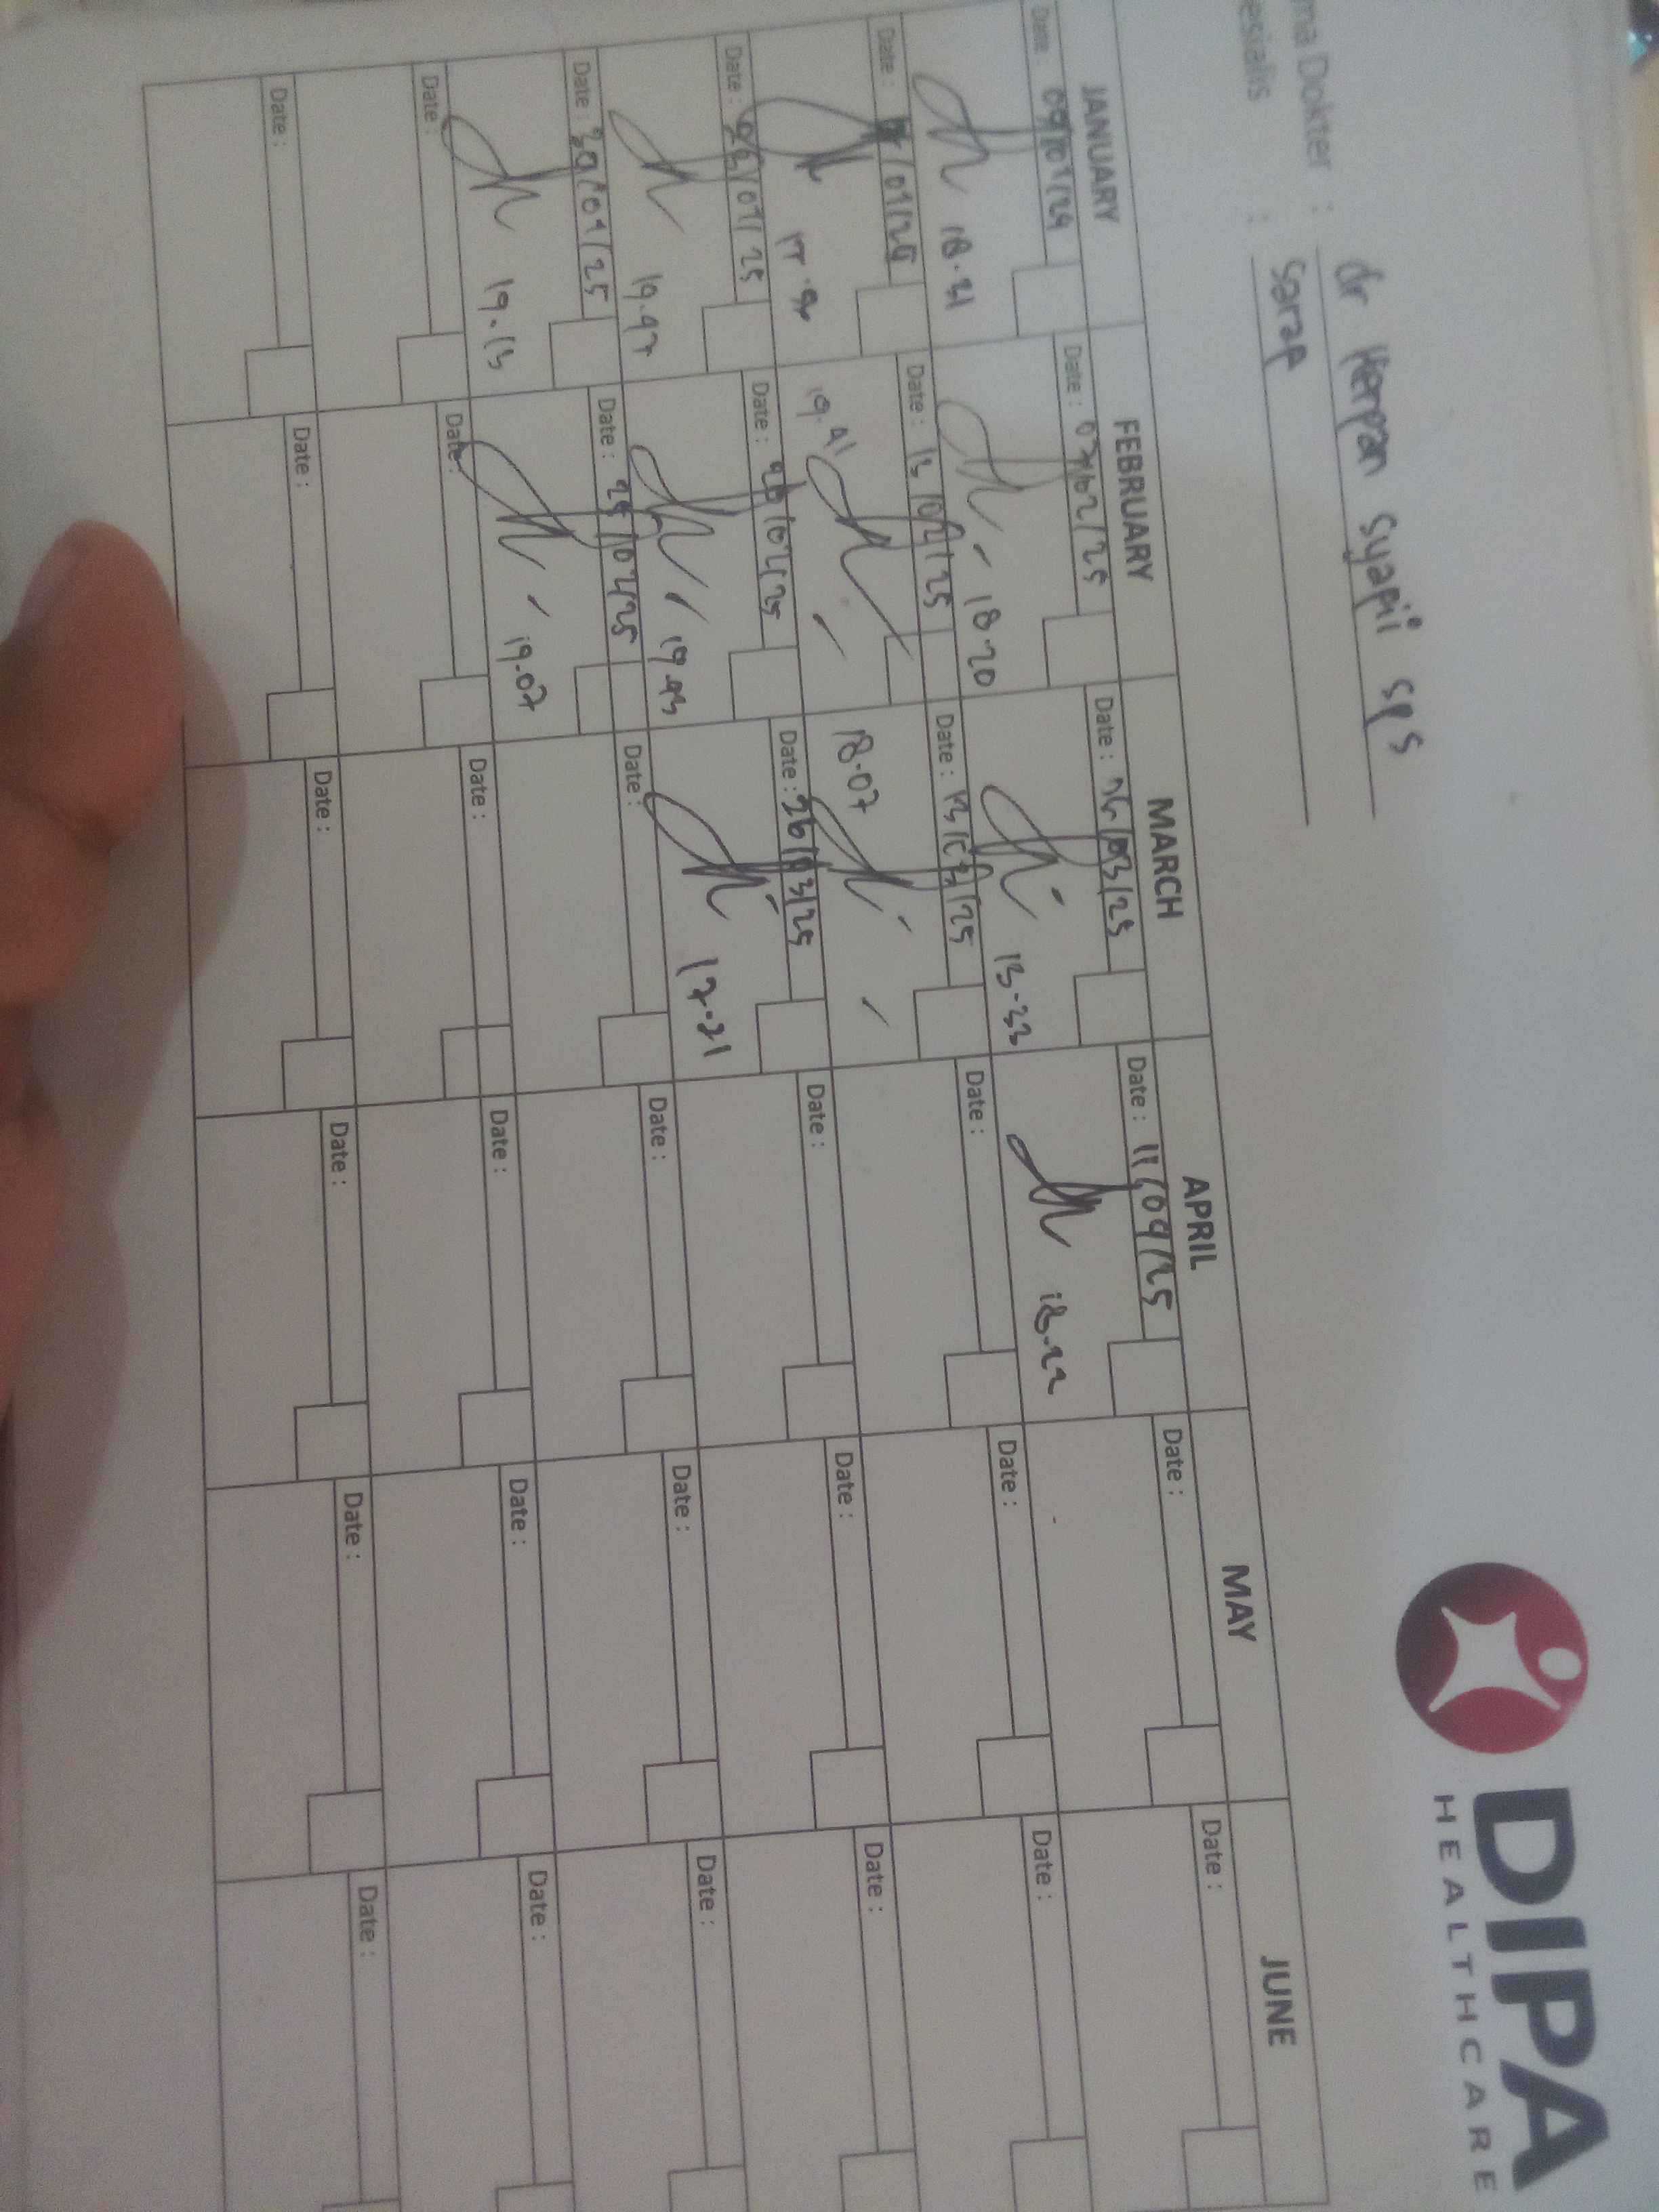 DIPA
HEALTHCARE
ma Dokter : dr Herpan Syapii SpS
esialis : Saraf
JANUARY FEBRUARY MARCH APRIL MAY JUNE
Date : 09/01/24 Date : 07/02/25 Date : 06/03/25 Date : 11/04/25 Date : Date :
18.31 18.20 13.33 18.22
Date : /01/25 Date : 13/02/25 Date : 13/03/25 Date : Date : Date :
19.41 18.07
Date : /01/25 Date : 20/02/25 Date : 26/03/25 Date : Date : Date :
19.47 19.43 17.21
Date : 30/01/25 Date : 25/02/25 Date : Date : Date : Date :
19.13 19.07
Date : Date : Date : Date : Date : Date :
Date : Date : Date : Date : Date : Date :